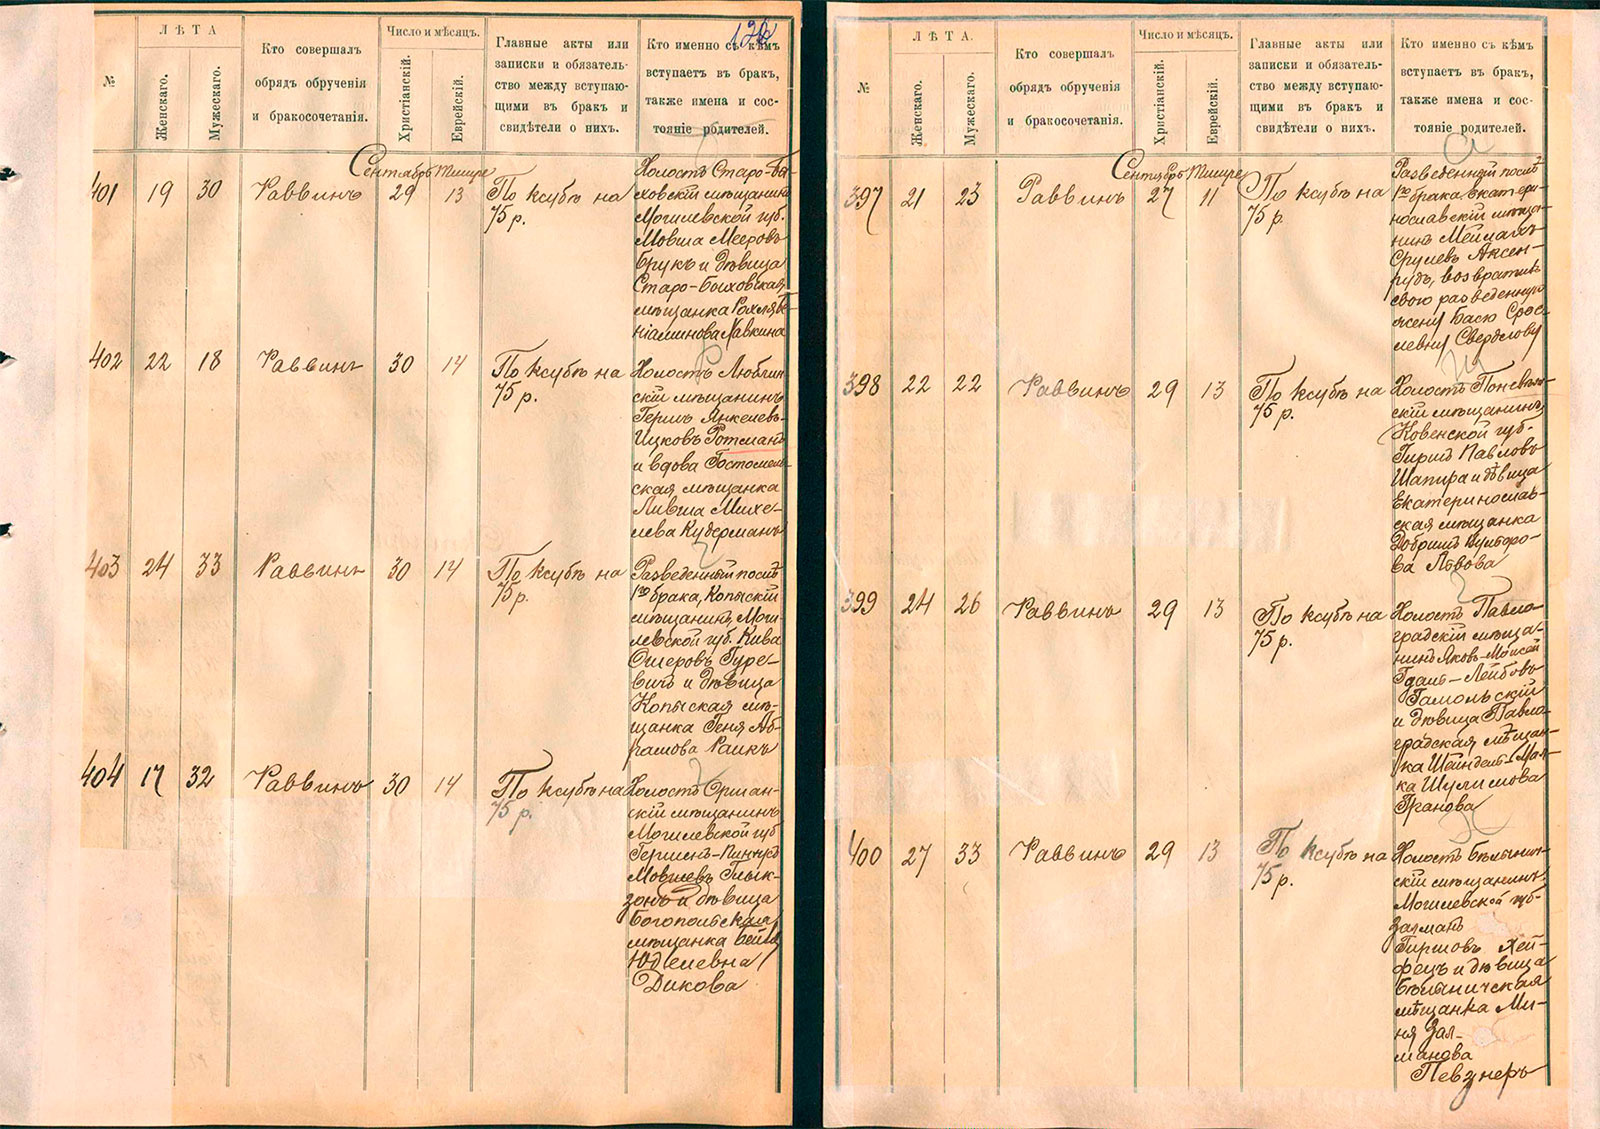 126
№
ЛѢТА
Женскаго.
Мужескаго.
Кто совершалъ
обрядъ обрученія
и бракосочетанія.
Число и мѣсяцъ.
Христіанскій.
Еврейскій.
Главные акты или
записки и обязатель-
ство между вступаю-
щими въ бракъ и
свидѣтели о нихъ.
Кто именно съ кѣмъ
вступаетъ въ бракъ,
также имена и сос-
тояніе родителей.
Сентябрь Тишре
401 19 30 Раввинъ 29 13 По ксубѣ на
75 р.
Холостъ Старо-Бы-
ховскій мѣщанинъ
Могилевской губ.
Мовша Мееровъ
Брукъ и дѣвица
Старо-Быховская
мѣщанка Рохля Бе-
ніаминова Хавкина
402 22 18 Раввинъ 30 14 По ксубѣ на
75 р.
Холостъ Люблин-
скій мѣщанинъ
Гершъ Янкелевъ-
Ицковъ Ротманъ
и вдова Гостомель-
ская мѣщанка
Ливша Михе-
лева Кудерманъ
403 24 33 Раввинъ 30 14 По ксубѣ на
75 р.
Разведенный послѣ
1го брака, Копысскій
мѣщанинъ Моги-
левской губ. Кива
Ошеровъ Гуре-
вичъ и дѣвица
Копыская мѣ-
щанка Геня Аб-
рамова Раикъ
404 17 32 Раввинъ 30 14 По ксубѣ на
75 р.
Холостъ Оршан-
скій мѣщанинъ
Могилевской губ.
Гершенъ-Пинхусъ
Мовшевъ Глык-
зонъ и дѣвица
Богопольская
мѣщанка Бейла
Юделевна
Дикова
№
ЛѢТА.
Женскаго.
Мужескаго.
Кто совершалъ
обрядъ обрученія
и бракосочетанія.
Число и мѣсяцъ.
Христіанскій.
Еврейскій.
Главные акты или
записки и обязатель-
ство между вступаю-
щими въ бракъ и
свидѣтели о нихъ.
Кто именно съ кѣмъ
вступаетъ въ бракъ,
также имена и сос-
тояніе родителей.
Сентябрь Тишре
397 21 23 Раввинъ 27 11 По ксубѣ на
75 р.
Разведенный послѣ
1го брака Екатери-
нославскій мѣща-
нинъ Меймахъ
Срулевъ Аксен-
рудъ, возвратилъ
свою разведенную
жену Басю Сро-
левну Свердлову
398 22 22 Раввинъ 29 13 По ксубѣ на
75 р.
Холостъ Поневѣж-
скій мѣщанинъ
Ковенской губ.
Гиршъ Павловъ
Шапира и дѣвица
Екатеринослав-
ская мѣщанка
Добришъ
Львова
399 24 26 Раввинъ 29 13 По ксубѣ на
75 р.
Холостъ Павло-
градскій мѣща-
нинъ Яковъ-Моисей
Гдаль-Лейбовъ
Гамольскій
и дѣвица Павло-
градская мѣщан-
ка Шейндель-Мал-
ка Шулимова
Гранова
400 27 33 Раввинъ 29 13 По ксубѣ на
75 р.
Холостъ Бѣлынич-
скій мѣщанинъ
Могилевской губ.
Залманъ
Гиршовъ Хей-
фецъ и дѣвица
Бѣлыничская
мѣщанка Ми-
ня Зал-
манова
Певзнеръ